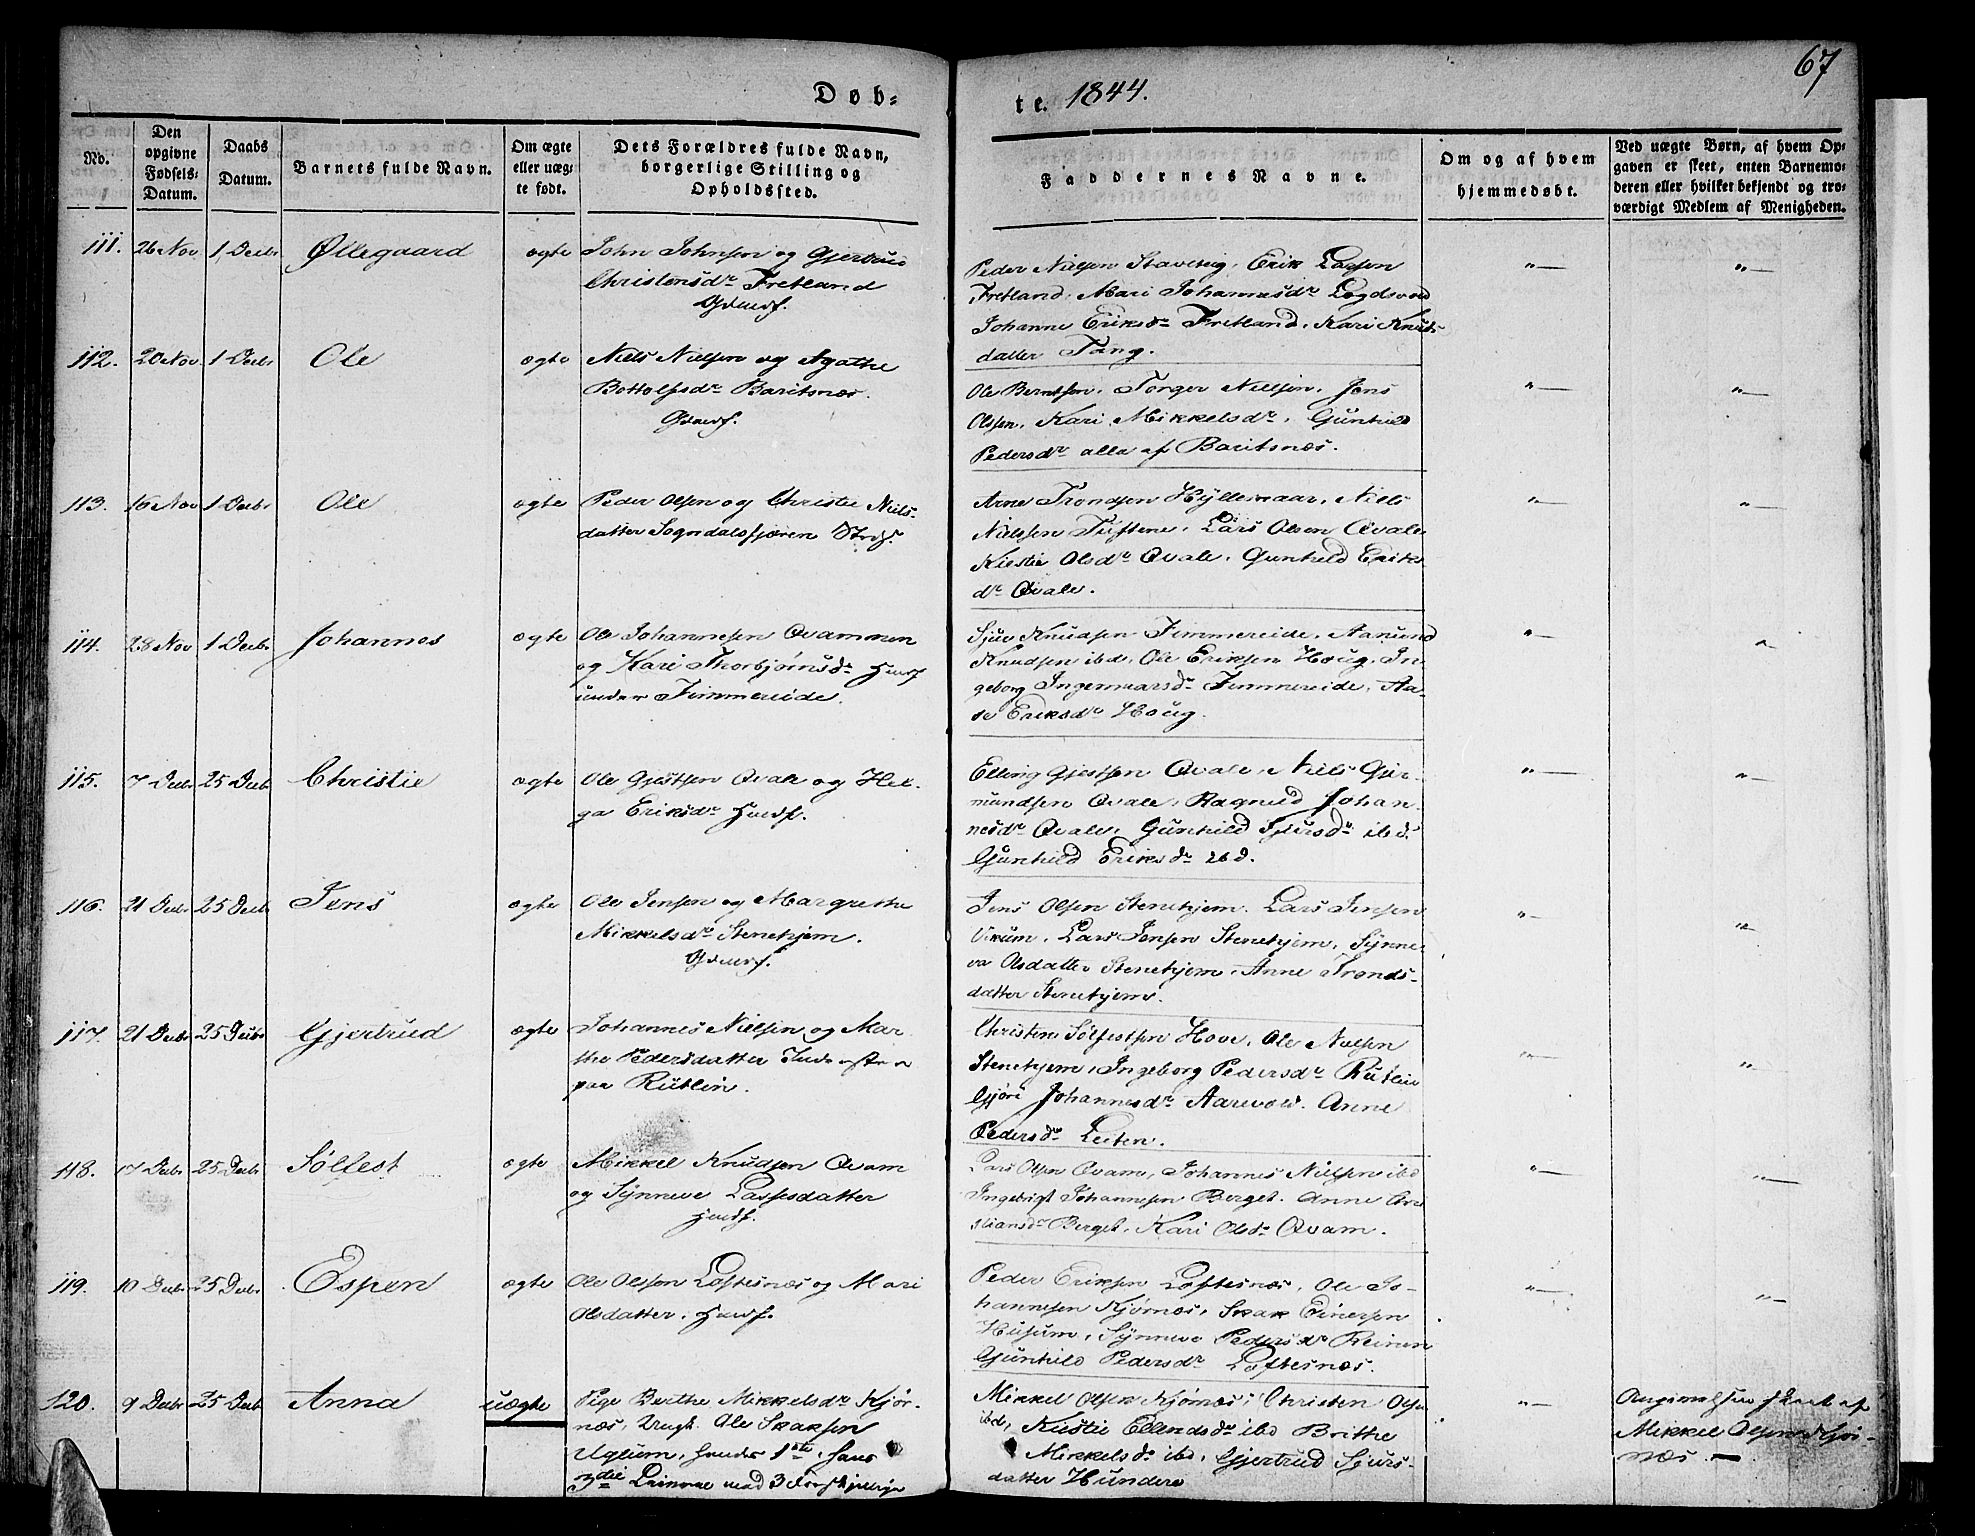 67
Døb-
te. 1844.
No.
Den opgivne Fødsels-Datum.
Daabs Datum.
Barnets fulde Navn.
Om ægte eller uæg-te født.
Dets Forældres fulde Navn, borgerlige Stilling og Opholdssted.
Faddernes Navne.
Om og af hvem hjemmedøbt.
Ved uægte Børn, af hvem Op-gaven er skeet, enten Barnemo-deren eller hvilket bekjendt og tro-værdigt Medlem af Menigheden.
111. 26 Nov 1 Decbr Øllegaard ægte John Johnsen og Gjertrud
Christensdr Fretland
Gdmdf.
Peder Nielsen Stavseng, Erik Lassen
Fretland, Mari Johannesdr
Johanne Eriksdr Fretland, Kari Knuts
datter Tang.
112. 20 Nov 1 Decbr Ole ægte Niels Nielsen og Agathe
Bottolfsdr Baritsnæs.
Gdmdf.
Ole Berntsen, Torger Nielsen, Jens
Olssen, Kari Mikkelsdr, Gunhild
Pedersdr alle af Baritsnæs.
113. 16 Nov 1 Decbr Ole ægte Peder Olsen og Christie Niels-
datter Sogndalsfjæren
Arne Trondsen Hyllemaar, Niels
Nielssen Tuftene, Lars Olsen Qvale
Kirstie Olsdr Qvale, Gunhild Eriks
dr Qvale.
114. 28 Nov 1 Decbr Johannes ægte Ole Johannesen Qvammen
og Kari Thorbjørnsdr Hmdf
under Fimmereide.
Sjur Knudsen Fimmereide, Aamund
Knudsen ibd, Ole Eriksen Houg, In-
geborg Ingemarsdr Fimmereide, Aa-
se Eriksdr Houg.
115. 7 Decbr 25 Decbr Christie ægte Ole Gjestsen Qvale og Hel-
ga Eriksdr Hmdf.
Elling Gjestsen Qvale, Niels Gier-
mundsen Qvale, Ragnild Johan-
nesdr Qvale, Gunhild Sjursdr ibd.
Gunhild Eriksdr ibd.
116. 21 Decbr 25 Decbr Jens ægte Ole Jensen og Margrethe
Mikkelsdr Stenehjem.
Gdmdf.
Jens Olsen Stenehjem, Lars Jensen
Vikum, Lars Jensen Stenehjem, Synne-
va Olsdatter Stenehjem, Anne Tronds-
datter Stenehjem.
117. 21 Decbr 25 Decbr Gjertrud ægte Johannes Nielsen og Mar-
the Pedersdatter Inderster
paa Rutlin.
Christen Sølfestsen Hove, Ole Nielsen
Stenehjem, Ingeborg Pedersdr Rutlin
Gjøri Johannesdr Aarevold. Anne
Pedersdr Leiten.
118. 17 Decbr 25 Decbr Sølfest ægte Mikkel Knudsen Qvam
og Synneve Lassesdatter
Hmdf.
Lars Olsen Qvam, Johannes Nielsen ibd
Ingebrigt Johannesen Berget. Anne Chri
stiansdr Berget, Kari Olsdr Qvam.
119. 10 Decbr 25 Decbr Espen ægte Ole Olsson Loftesnæs og Mari
Olsdatter. Hmdf.
Peder Eriksen Loftesnæs, Ole Jo-
hannesen Kjørnæs, Skak Einersen
Husum, Synneve Pedersdr
Gunhild Pedersdr Loftesnæs.
120. 9 Decbr 25 Decbr Anna uægte Pige Berthe Mikkelsdr Kjør-
næs, Ungk. Ole Skaksen
Uglum, hendes 1ste, hans
3die Leiermaal med 3 forskjellige
Mikkel Olsen Kjørnæs, Christen Ols
ibd, Kirstie Ellendsdr ibd Brithe
Mikkelsdr ibd, Gjertrud Sjurs-
datter Hundere
Angivelsen skeet af
Mikkel Olsen Kjør-
næs. —